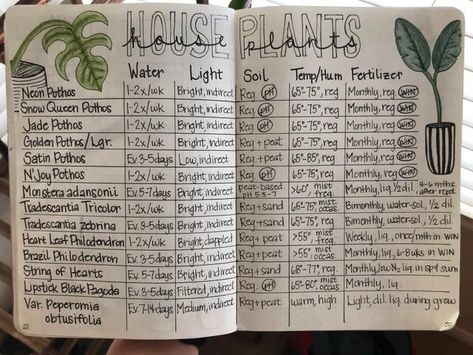 HOUSE PLANTS
house plants
Water Light Soil Temp/Hum Fertilizer
Neon Pothos 1-2x/wk Bright, indirect Reg pH 65°-75°, reg Monthly, reg
Snow Queen Pothos 1-2x/wk Bright, indirect Reg pH 65°-75°, reg Monthly, reg
Jade Pothos 1-2x/wk Bright, indirect Reg pH 65°-75°, reg Monthly, reg
Golden Pothos/Lgr. 1-2x/wk Bright, indirect Reg + peat 65°-75°, reg Monthly, reg
Satin Pothos Ev. 3-5 days Low, indirect Reg + peat 65°-85°, reg Monthly, reg
N'Joy Pothos 1-2x/wk Bright, indirect Reg pH 65°-75°, reg Monthly, reg
Monstera adansonii Ev. 5-7 days Bright, indirect peat-based pH 5.5-7 >60° mist freq Monthly, liq. 1/2 dil. 4-6 mths after repot
Tradescantia Tricolor 1-2x/wk Bright, indirect Reg + sand 65°-75° mist occas Bimonthly, water-sol, 1/2 dil.
Tradescantia zebrina Ev. 3-5 days Bright, indirect Reg + sand 65°-75°, reg Bimonthly, water-sol, 1/2 dil.
Heart Leaf Philodendron 1-2x/wk Bright, dappled Reg + peat >55° mist freq Weekly, liq., once/mth in WIN
Brazil Philodendron Ev. 3-5 days Bright, indirect Reg + peat >55° mist occas Monthly, 6-8wks in WIN
String of Hearts Ev. 5-7 days Bright, indirect Reg + sand 68°-77°, reg Monthly, low N, liq in spr sum
Lipstick Black Pagoda Ev. 3-5 days Filtered, indirect Reg pH 65°-80° mist occas Monthly, liq.
Var. Peperomia obtusifolia Ev. 7-14 days Medium, indirect Reg + peat warm, high Light, dil. liq during grow
21